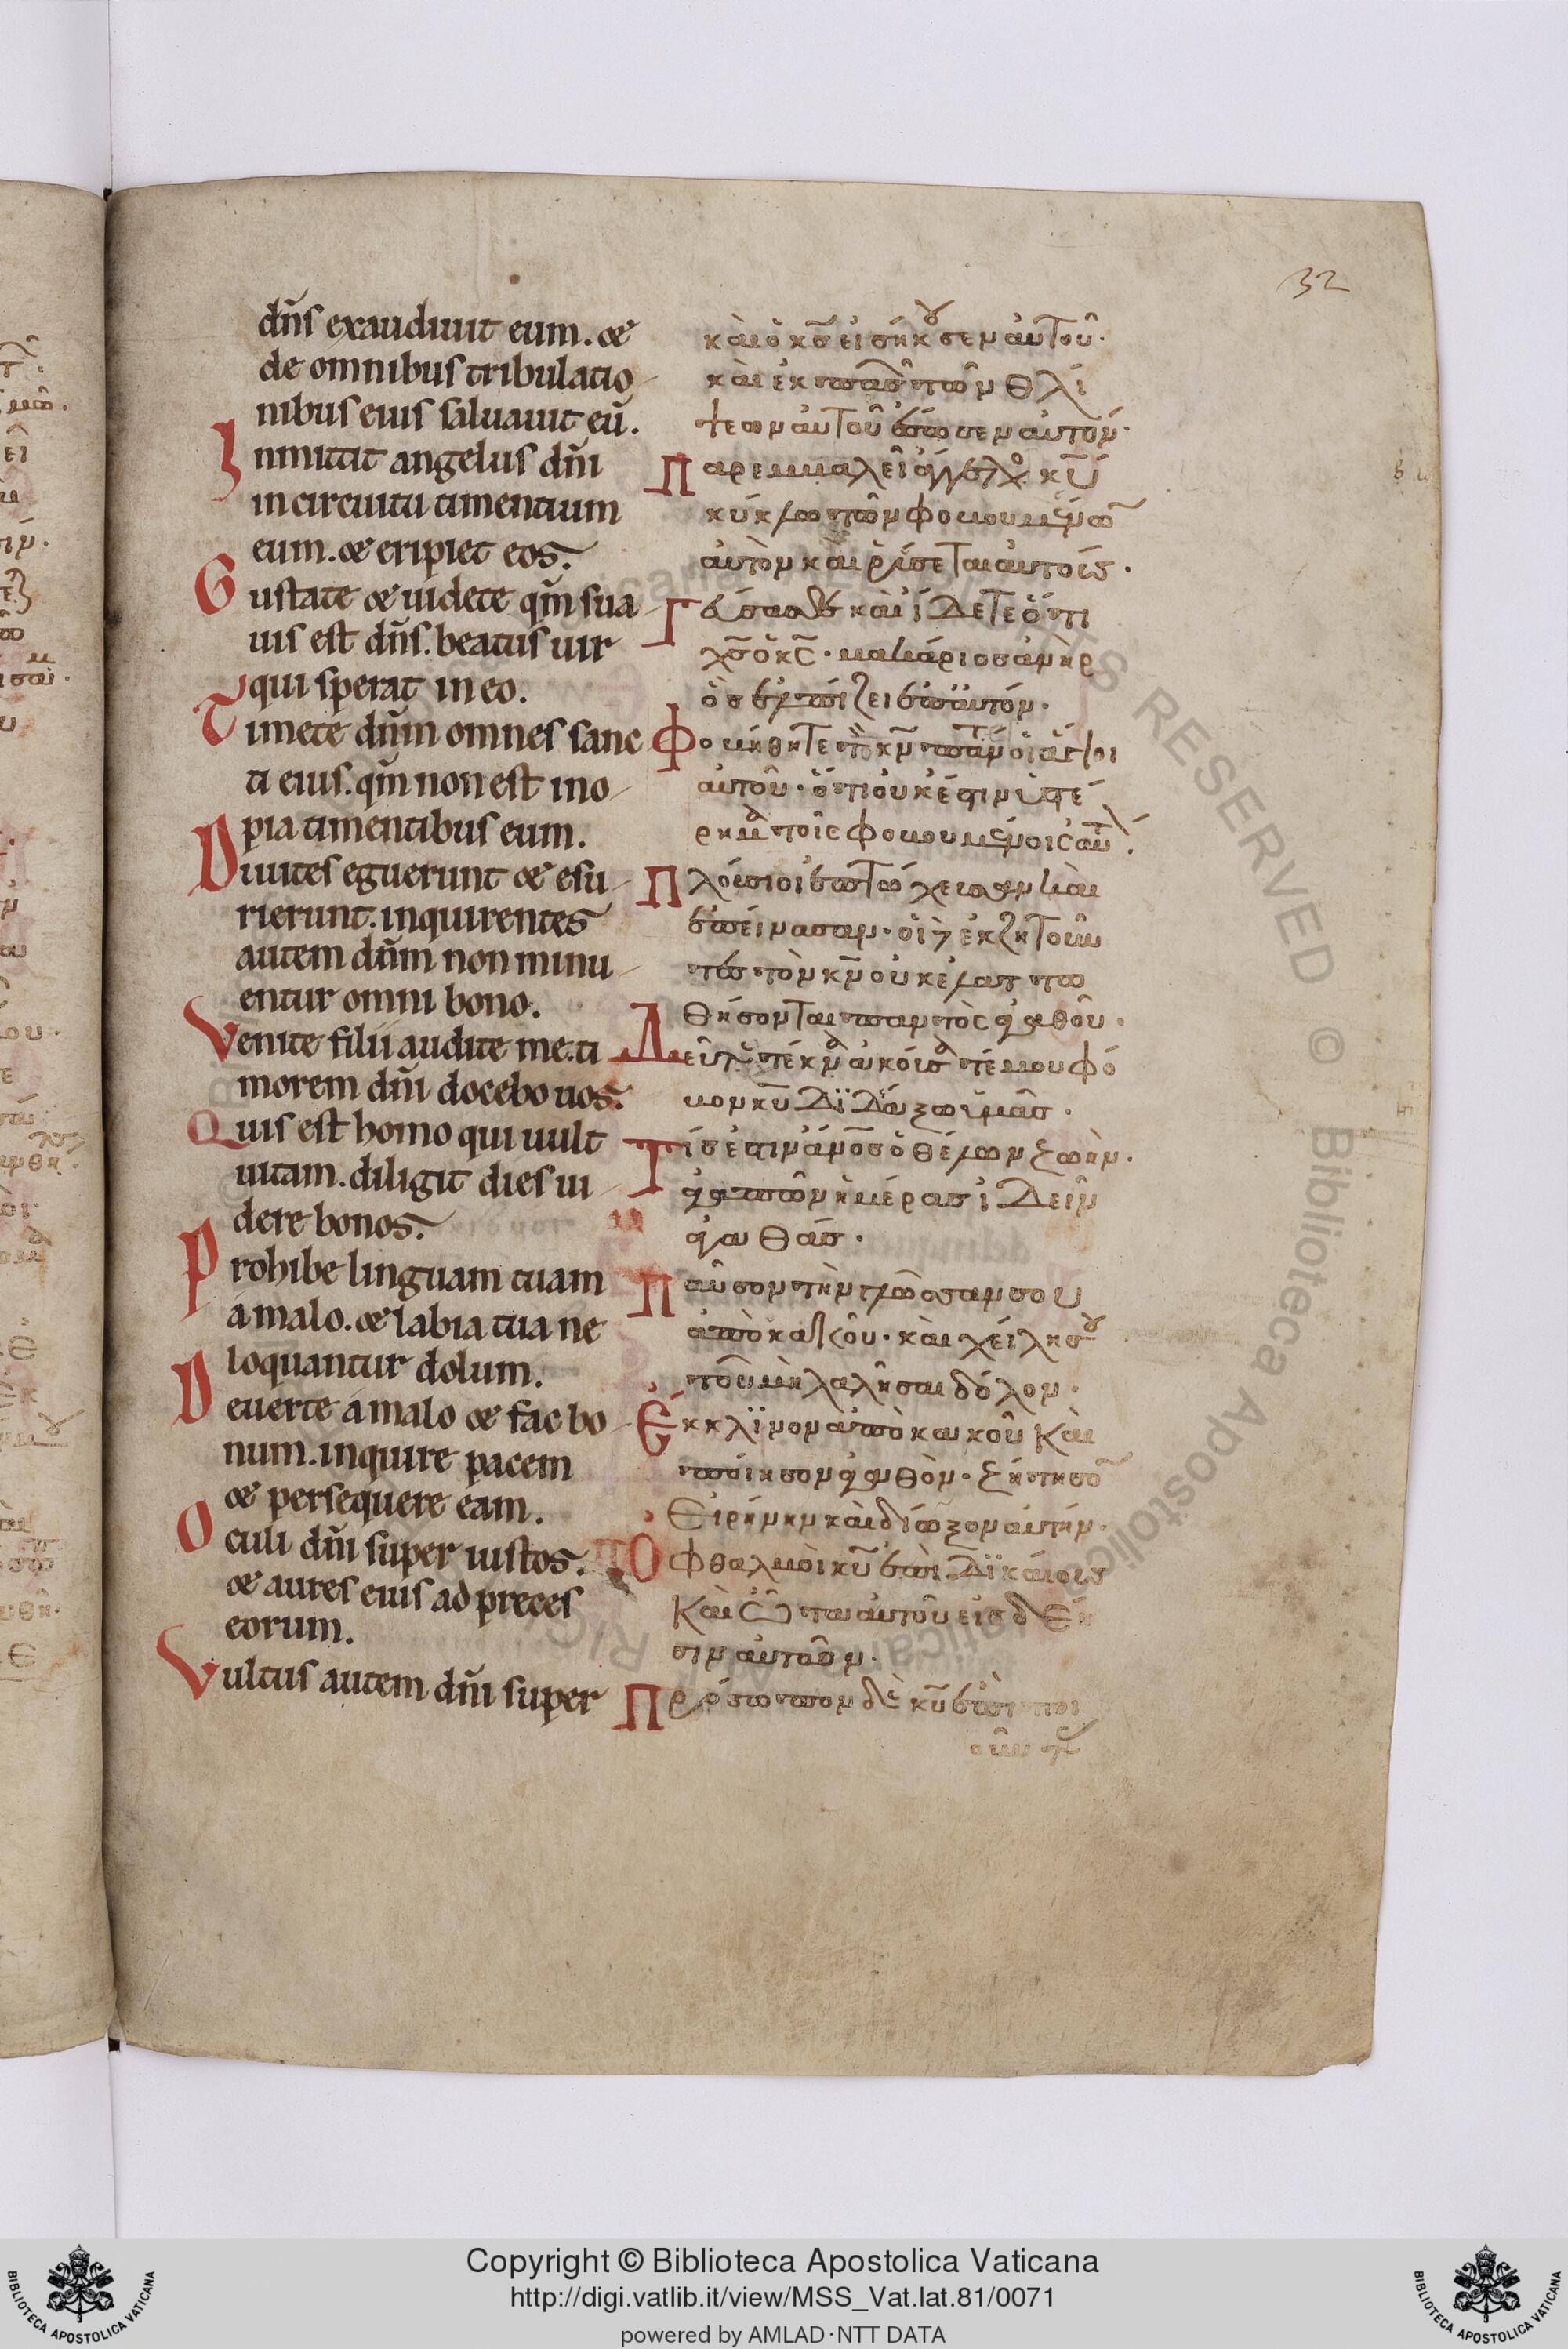 32
dn̄s exaudiuit eum. &
de omnibus tribulatio
nibus eius saluauit eū.
Inmittit angelus dn̄i
in circuitu timentium
eum. & eripiet eos.
Gustate & uidete qm̄ sua
uis est dn̄s. beatus uir
qui sperat in eo.
Timete dn̄m omnes sanc
ti eius. qm̄ non est ino
pia timentibus eum.
Diuites eguerunt & esu
rierunt. inquirentes
autem dn̄m non minu
entur omni bono.
Venite filii audite me. ti
morem dn̄i docebo uos.
Quis est homo qui uult
uitam. diligit dies ui
dere bonos.
Prohibe linguam tuam
a malo. & labia tua ne
loquantur dolum.
Deuerte a malo & fac bo
num. inquire pacem
& persequere eam.
Oculi dn̄i super iustos.
& aures eius ad preces
eorum.
Vultus autem dn̄i super
καὶ ὁ κ̅ς̅ εἰσήκουσεν αὐτοῦ·
καὶ ἐκ πασῶν τῶν θλί
ψεων αὐτοῦ ἔσωσεν αὐτόν·
Παρεμβαλεῖ ἄγγελος κ̅υ̅
κύκλω τῶν φοβουμένων
αὐτὸν καὶ ῥύσεται αὐτούς·
Γεύσασθε καὶ ἴδετε ὅτι
χ̅ς̅ ὁ κ̅ς̅· μακάριος ἀνὴρ
ὃς ἐλπίζει ἐπ αὐτόν·
Φοβήθητε τὸν κ̅ν̅ πάντ οἱ ἅγιοι
αὐτοῦ· ὅτι οὐκ ἔστιν ὑστέ
ρημα τοῖς φοβουμένοις αὐτ
Πλούσιοι ἐπτώχευσαν καὶ
ἐπείνασαν· οἱ δὲ ἐκζητοῦν
τες τὸν κ̅ν̅ οὐκ ἐλαττω
θήσονται παντὸς ἀγαθοῦ·
Δεῦτε τέκνα ἀκούσατέ μου φό
βον κ̅υ̅ διδάξω ὑμᾶς·
Τίς ἐστιν ἄν̅ο̅ς̅ ὁ θέλων ζωήν·
ἀγαπῶν ἡμέρας ἰδεῖν
ἀγαθάς·
Παῦσον τὴν γλῶσσάν σου
ἀπὸ κακοῦ· καὶ χείλη σου
τοῦ μὴ λαλῆσαι δόλον·
Ἔκκλινον ἀπὸ κακοῦ καὶ
ποίησον ἀγαθόν· ζήτησον
Εἰρήνην καὶ δίωξον αὐτήν·
Ὀφθαλμοὶ κ̅υ̅ ἐπὶ δικαίους
Καὶ ὦτα αὐτοῦ εἰς δέη
σιν αὐτῶν·
Πρόσωπον δὲ κ̅υ̅ ἐπὶ ποι
οῦν
Copyright © Biblioteca Apostolica Vaticana
http://digi.vatlib.it/view/MSS_Vat.lat.81/0071
powered by AMLAD·NTT DATA
BIBLIOTECA APOSTOLICA VATICANA
BIBLIOTECA APOSTOLICA VATICANA